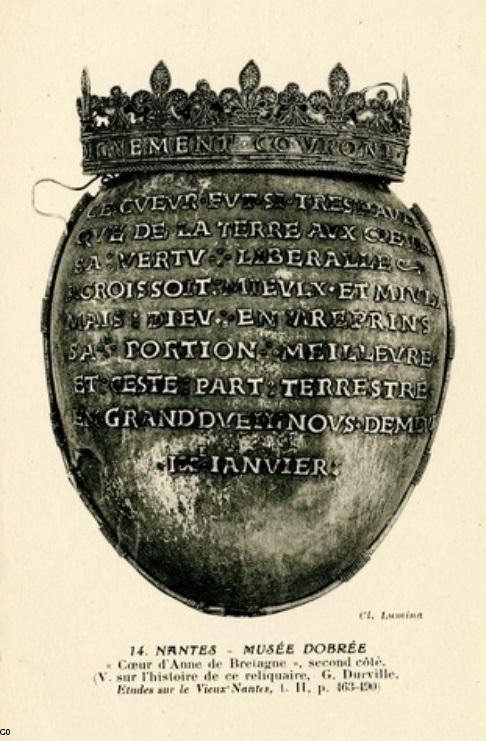 GNEMENT · COVRONE
CE · CVEVR · FVT · SI · TRES
QVE DE LA TERRE AVX
SA : VERTV : LIBERALLE
ACROISSOIT : MIEVLX · ET
MAIS : DIEV : EN REPRINS
SA : PORTION : MEILLEVRE
ET CESTE PART : TERRESTRE
EN GRAND DVEIL NOVS
· IX · IANVIER :
Cl. Lumina
14. NANTES - MUSÉE DOBRÉE
« Cœur d'Anne de Bretagne », second côté.
(V. sur l'histoire de ce reliquaire, G. Durville,
Etudes sur le Vieux Nantes, t. II, p. 463-490)
co